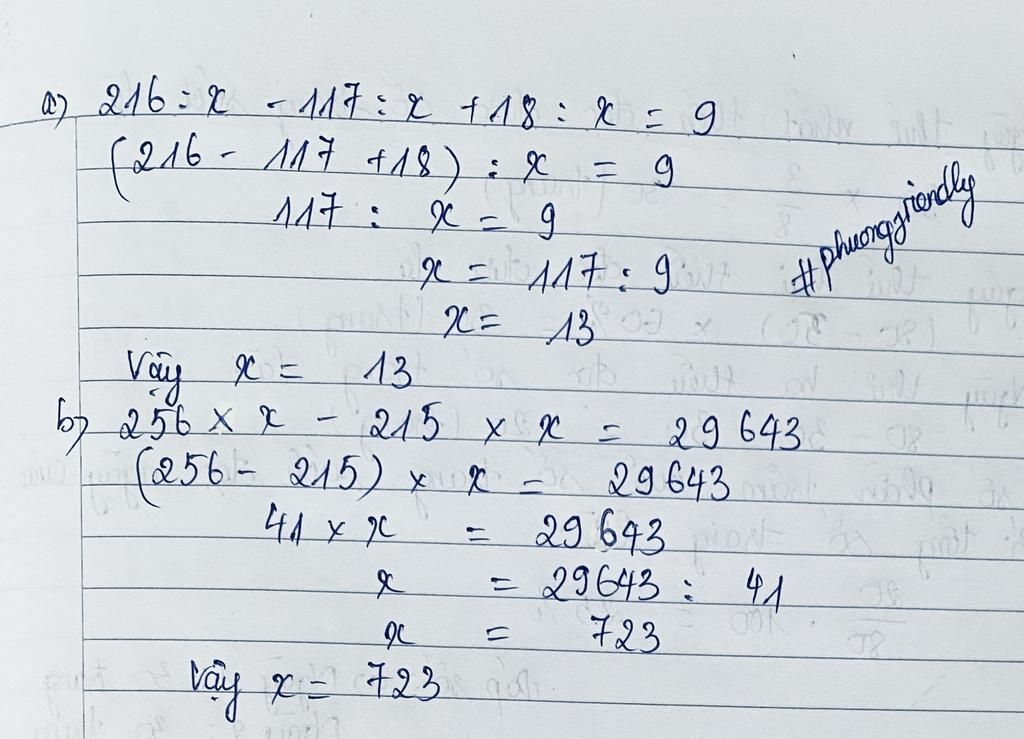 a) 216 : x - 117 : x + 18 : x = 9
(216 - 117 + 18) : x = 9
117 : x = 9
x = 117 : 9
x = 13
Vậy x = 13
#phuongfriendly
b) 256 × x - 215 × x = 29 643
(256 - 215) × x = 29643
41 × x = 29643
x = 29643 : 41
x = 723
Vậy x = 723